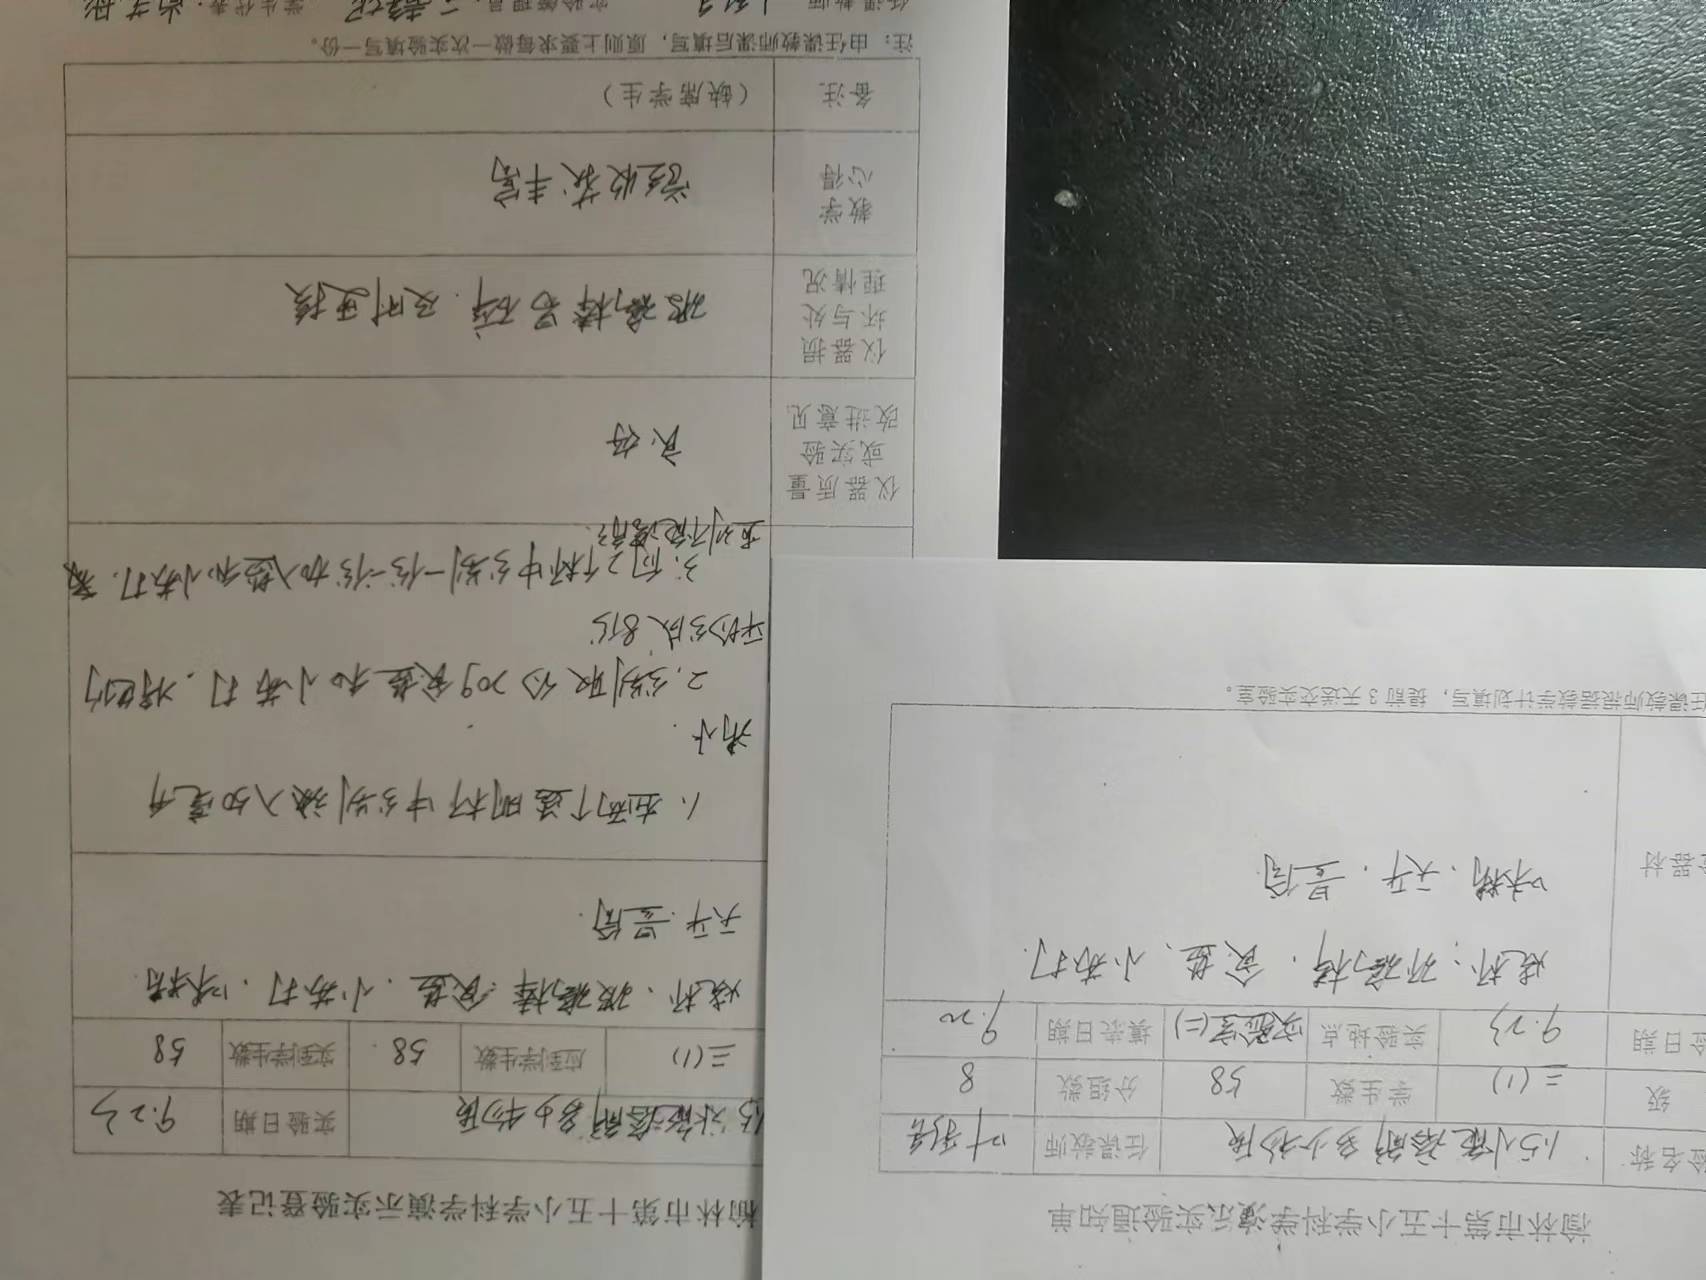 榆林市第十五小学科学演示实验登记表
1.5 水能溶解多少物质 实验日期 9.23
三(1) 应到学生数 58 实到学生数 58
烧杯、玻璃棒、食盐、小苏打、
天平、量筒
1. 在两个透明杯中分别
2. 分别取 20g食盐和小苏打,
平均分成8份
3. 向2个杯中分别一份一份加入盐和小苏打,
直到不能溶解
仪器质量或实验改进意见 良好
仪器损坏与处理情况 玻璃棒易碎,及时更换
教学心得 学生收获丰富
备注 (缺席学生)
注:由任课教师课后填写,原则上要求每做一次实验填写一份。
任课教师 实验管理员: 学生代表:
榆林市第十五小学科学演示实验通知单
验名称 1.5水能溶解多少物质 任课教师
级 三(1) 学生数 58 分组数 8
验日期 9.23 实验地点 实验室(二) 填表日期 9.20
验器材
烧杯、玻璃棒、食盐、小苏打、
天平、量筒
任课教师根据教学计划填写,提前3天送交实验室。